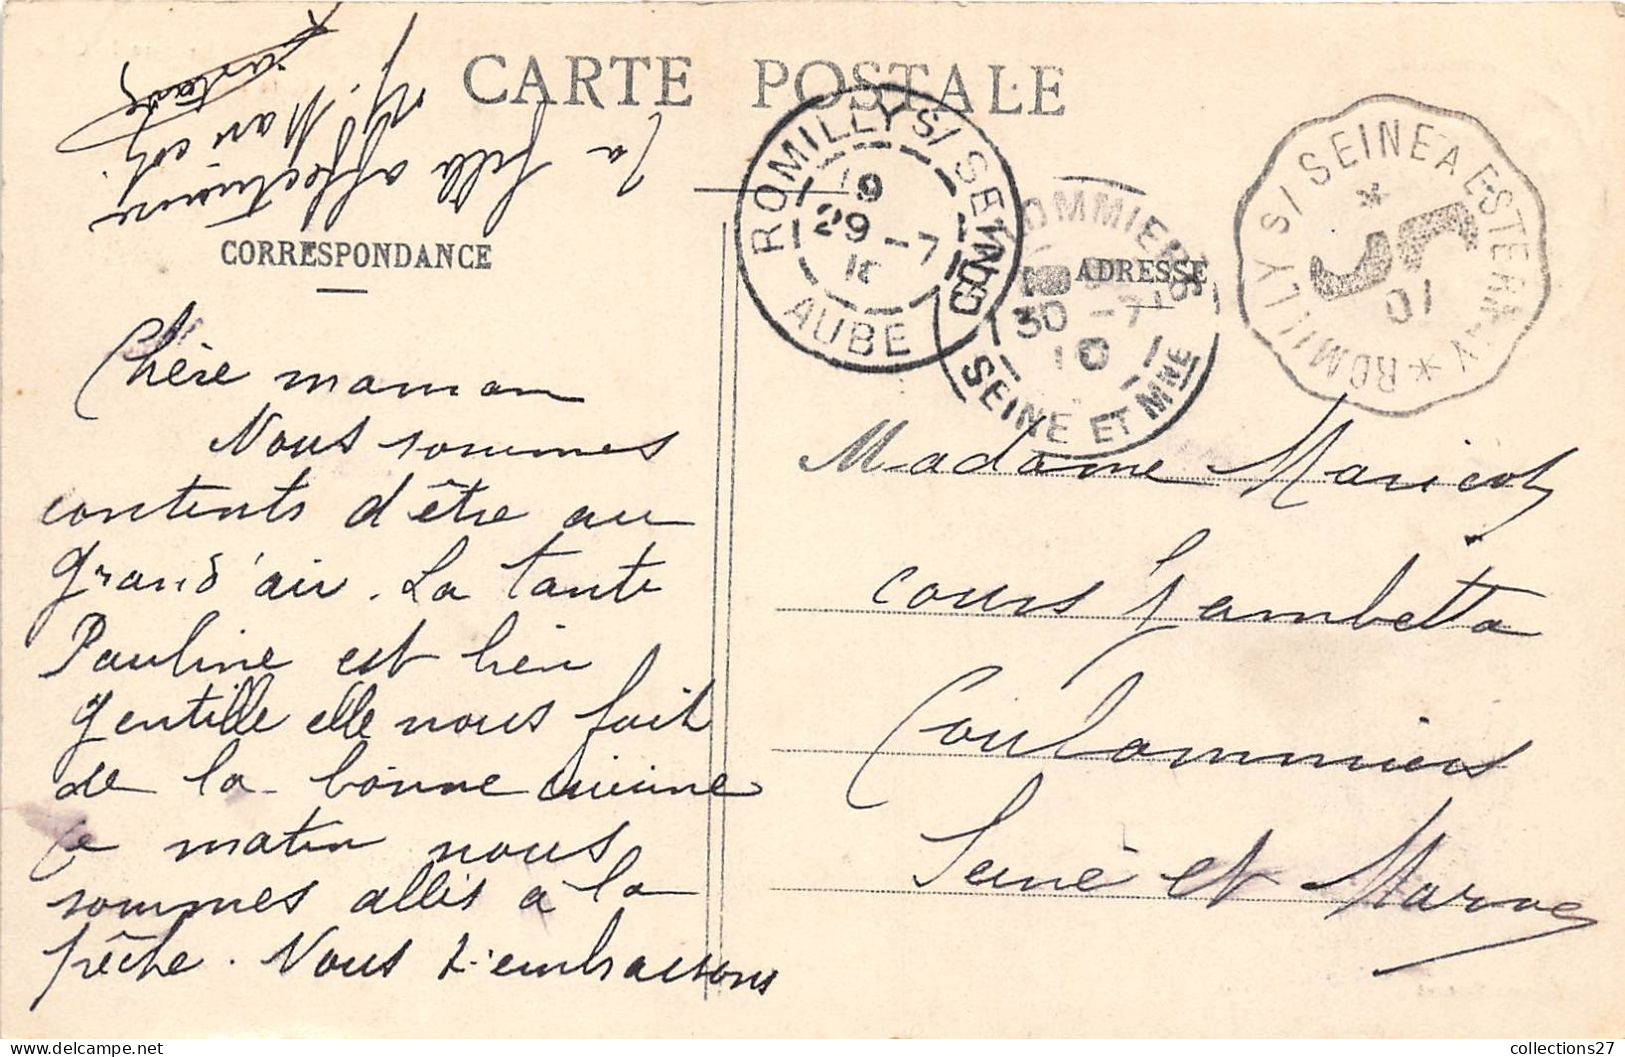 CARTE POSTALE
CORRESPONDANCE
ADRESSE
ROMILLY S/ SEINE
19
29 - 7
AUBE
COULOMMIERS
30 - 7
10
SEINE ET MNE
ROMILLY S/ SEINE A ESTERNAY
01
Chère maman
Nous sommes
contents d'être au
grand'air. La tante
Pauline est bien
gentille elle nous fait
de la bonne cuisine
Ce matin nous
sommes allés à la
pêche. Nous t'embrassons
Ta fille affectueuse
M. Maricot
Madame Maricot
cours Gambetta
Coulommiers
Seine et Marne
collections27